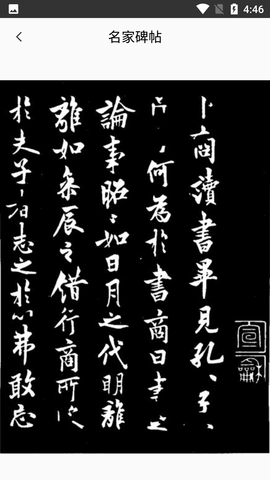 4:46
名家碑帖
卜商讀書畢見孔〻子〻
𠯁〻何為於書商曰書之
論事昭〻如日月之代明離
離如參辰之錯行商所以
於夫子〻志之於心弗敢忘
宣和